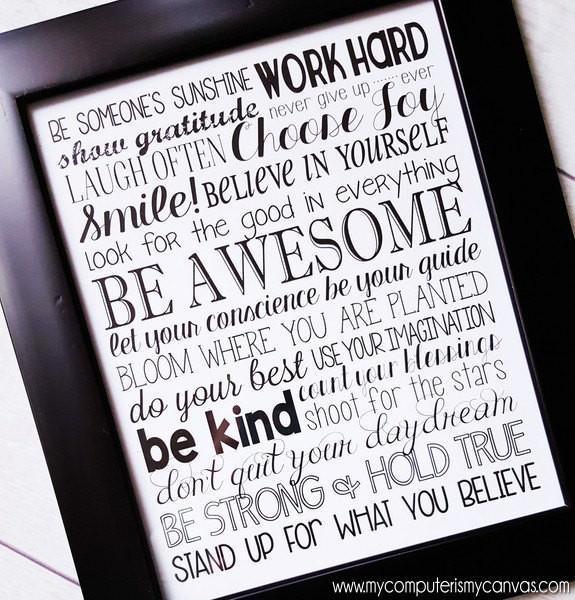 BE SOMEONE'S SUNSHINE WORK HARD
show gratitude never give up ....... ever
LAUGH OFTEN Choose Joy
Smile! BELIEVE IN YOURSELF
look for the good in everything
BE AWESOME
let your conscience be your guide
BLOOM WHERE YOU ARE PLANTED
do your best USE YOUR IMAGINATION
be kind count your blessings
shoot for the stars
don't quit your daydream
BE STRONG & HOLD TRUE
STAND UP FOR WHAT YOU BELIEVE
www.mycomputerismycanvas.com